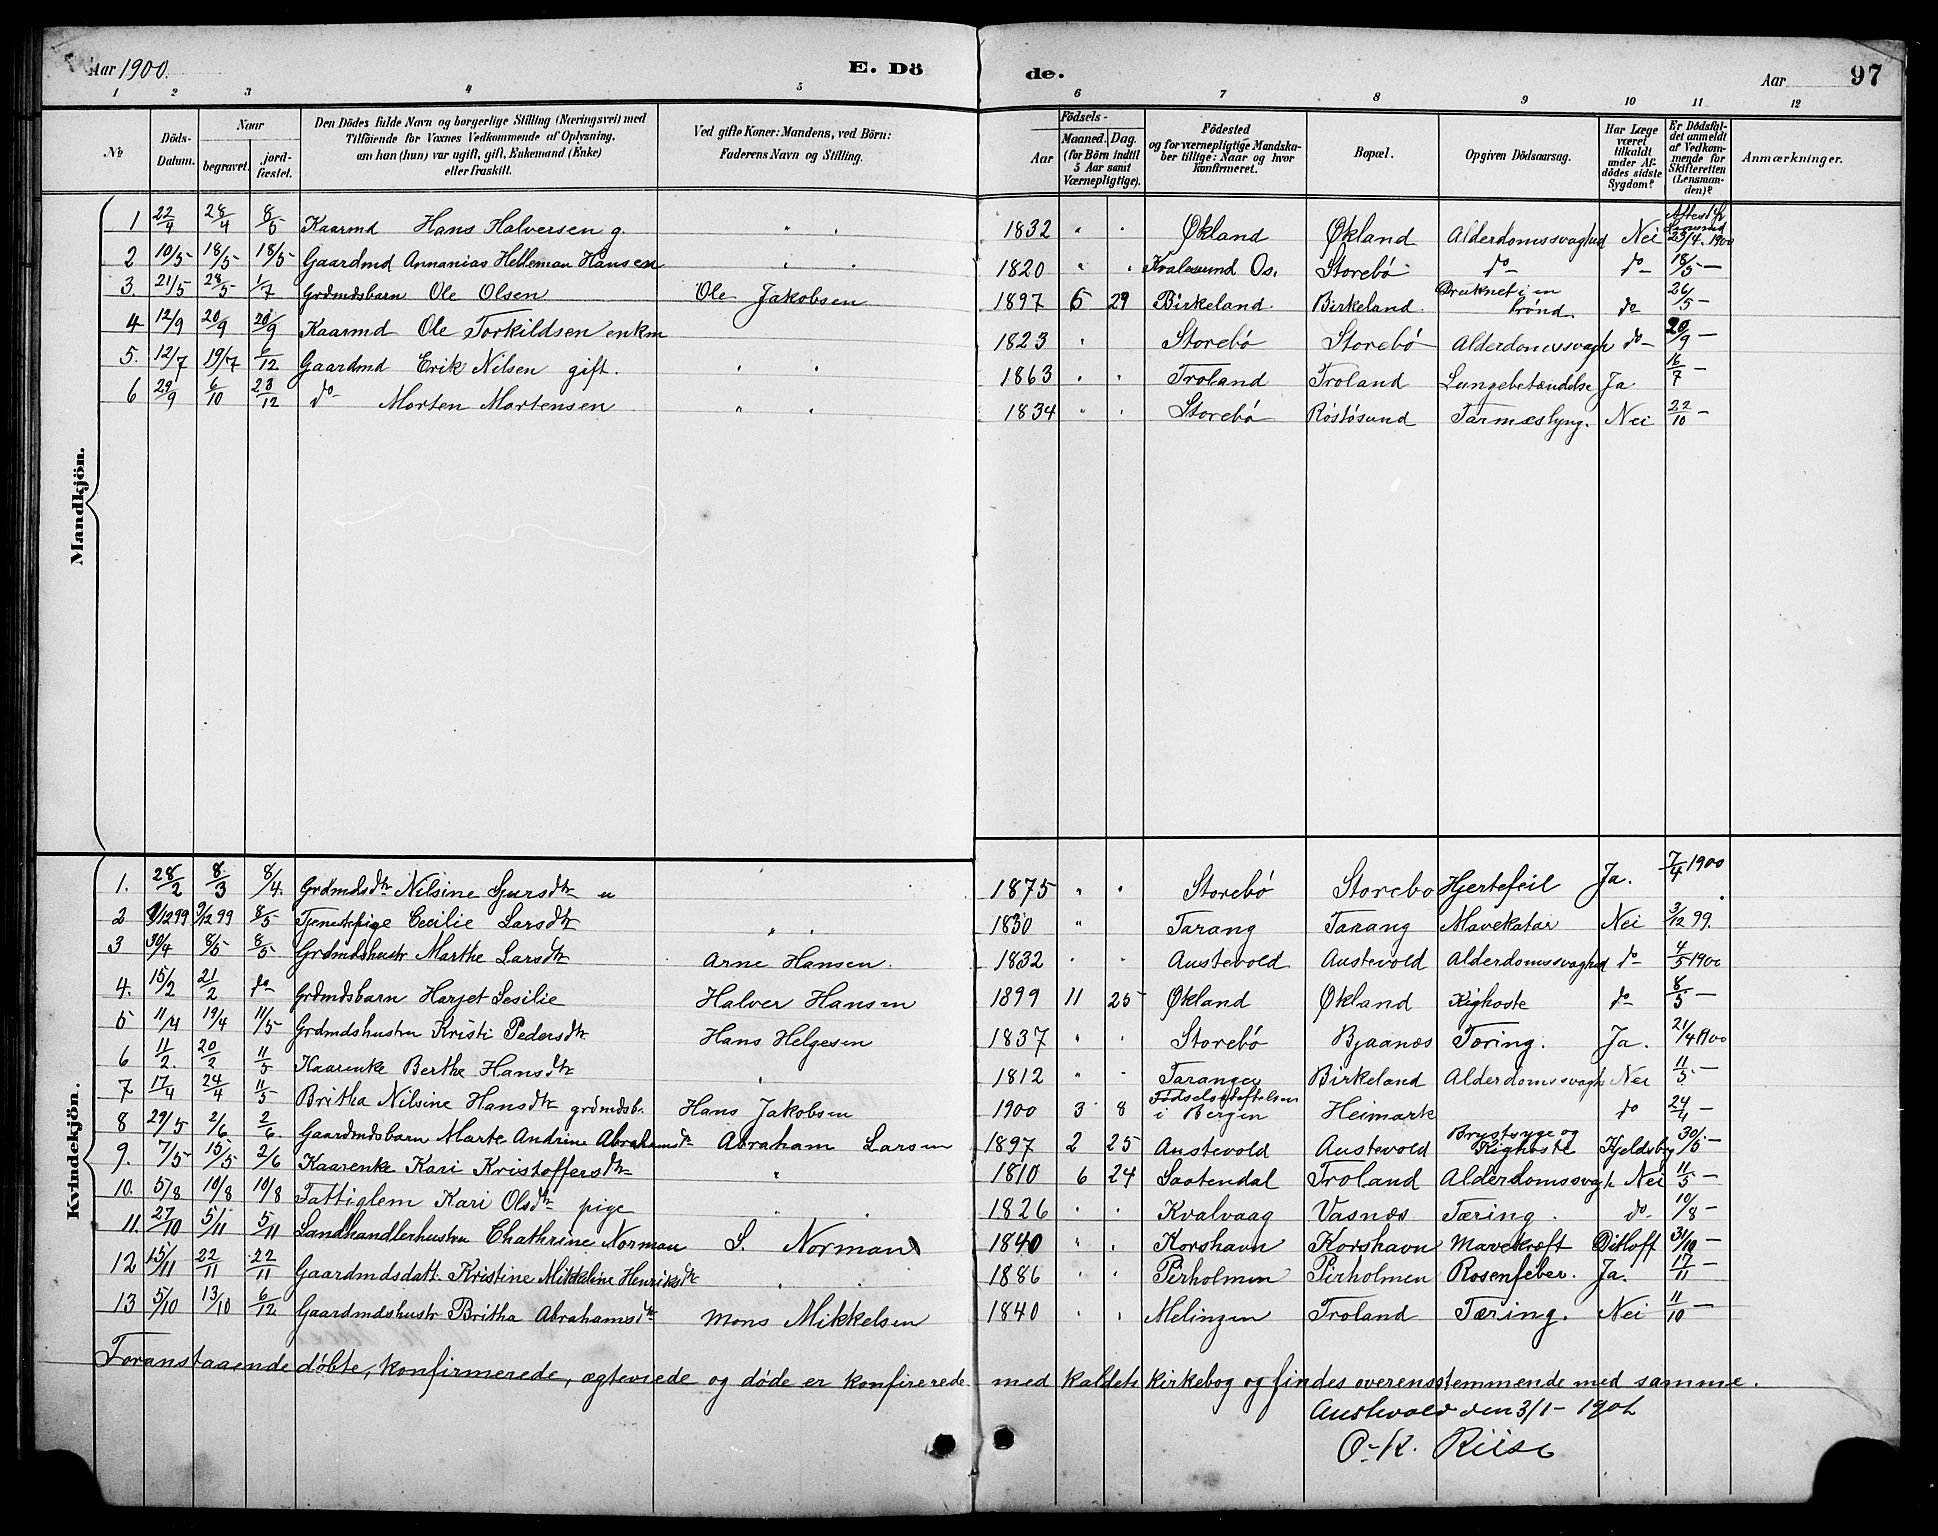 Aar 1900. E. Dö
de. Aar 97
1 2 3 4 5 6 7 8 9 10 11 12
№ Döds-Datum. Naar begravet. jord-fæstet. Den Dödes fulde Navn og borgerlige Stilling (Næringsvei) med Tilföiende for Voxnes Vedkommende af Oplysning, om han (hun) var ugift, gift, Enkemand (Enke) eller fraskilt. Ved gifte Koner: Mandens, ved Börn: Faderens Navn og Stilling. Födsels- Aar Maaned. Dag. (for Börn indtil 5 Aar samt Værnepligtige). Födested og for værnepligtige Mandskaber tillige: Naar og hvor konfirmeret. Bopæl. Opgiven Dödsaarsag. Har Læge været tilkaldt under Afdödes sidste Sygdom? Er Dödsfaldet anmeldt af Vedkommende for Skifteretten (Lensmanden)? Anmærkninger.
Mandkjön.
1 22/4 28/4 8/5 Kaarmd Hans Halversen g. " " 1832 " " Økland Økland Alderdomssvaghed Nei 23/4 1900
2 10/5 18/5 18/5 Gaardmd Annanias Helleman Hansen " " 1820 " " Kvalesund Os. Storebø do do 18/5 —
3. 21/5 28/5 1/7 Grdmdsbarn Ole Olsen Ole Jakobsen 1897 5 29 Birkeland Birkeland. Druknet i en brønd. do 26/5 —
4 12/9 20/9 20/9 Kaarmd Ole Torkildsen enkm 1823 " Storebø Storebø Alderdomssvagh do 20/9 —
5. 12/7 19/7 6/12 Gaardmd Erik Nilsen gift. " " 1863 " " Troland Troland Lungebetændelse Ja 16/7 —
6 29/9 6/10 23/12 do Morten Mortensen " " 1834 " " Storebø Røstøsund Tarmeslyng. Nei 22/10 —
Kvindekjön.
1. 28/2 8/3 8/4. Grdmdsdtr Nilsine Sjursdtr u " 1875 " " Storebø Storebø Hjertefeil Ja. 7/4 1900
2 /1299 /1299 8/5 Tjenestepige Cecilie Larsdtr " " 1830 " Tarang Tarang Mavekatar Nei 3/12 99.
3 30/4 8/5 8/5 Grdmdshustr Marthe Larsdtr Arne Hansen. 1832 " " Austevold Austevold Alderdomssvaghed do 4/5 1900
4. 15/2 21/2 do Grdmdsbarn Harjet Sesilie Halver Hansen 1899 11 25 Økland Økland Kighoste do 8/5 —
5 11/4 19/4 11/5 Grdmdshustru Kristi Pedersdtr Hans Helgesen 1837 " " Storebø Bjaanæs Tæring. Ja. 21/4 1900
6 11/2. 20/2 11/5 Kaarenke Berthe Hansdtr " 1812 " " Taranger Birkeland Alderdomssvagh Nei 11/5 —
7 17/4 24/4 11/5 Britha Nilsine Hansdtr grdmdsb. Hans Jakobsen 1900 3 8 Fødselsstiftelsen i Bergen Heimark do 24/4 —
8 29/5 2/6 2/6. Gaardmdsbarn Marte Andrine Abrahamsdtr Abraham Larsen 1897 2 25 Austevold Austevold Brystsyge og Kighoste Kjeldsberg 30/5 —
9. 7/5 15/5 2/6 Kaarenke Kari Kristoffersdtr " 1810 6 24 Saatendal Troland Alderdomssvagh Nei 11/5 —
10. 5/8 10/8 10/8 Fattiglem Kari Olsdtr pige " " 1826 " " Kvalvaag Vasnæs Tæring. do. 10/8 —
11. 27/10 5/11 5/11 Landhandlerhustru Chathrine Norman S. Norman 1840 " " Korshavn Korshavn Mavekræft Ditloff 31/10 —
12 15/11 22/11 22/11 Gaardmdsdatt. Kristine Mikkeline Henriksdtr " " 1886 " " Pirholmen Pirholmen Rosenfeber. Ja. 17/11 —
13 5/10 13/10 6/12 Gaardmdshustr Britha Abrahamsdtr Mons Mikkelsen 1840 " " Melingen Troland Tæring. Nei 11/10 —
Foranstaaende døbte, konfirmerede, ægteviede og døde er konfirerede med kaldets kirkebog og findes overensstemmende med samme.
Austevold den 3/1 - 1901
O. K. Riise